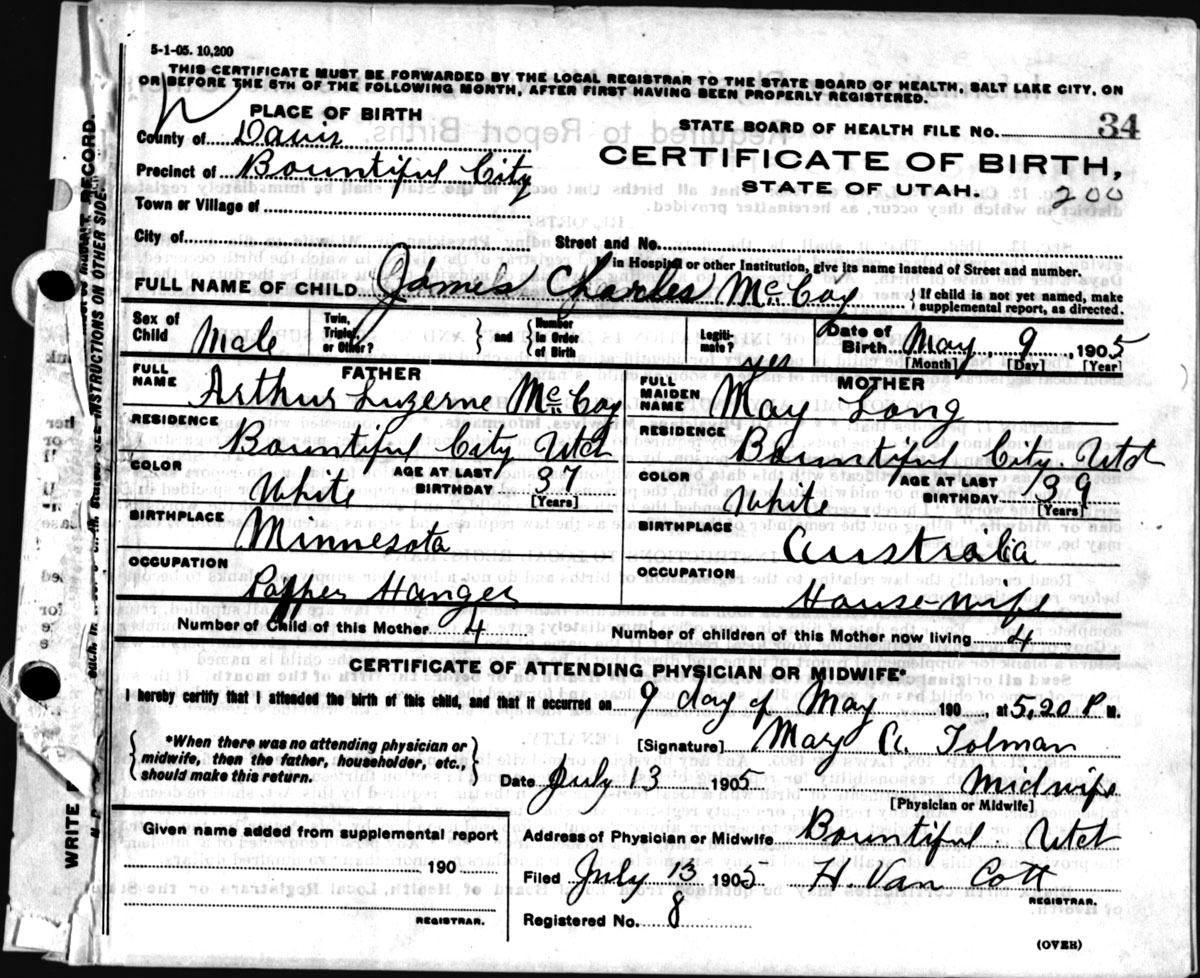 5-1-05. 10,200
THIS CERTIFICATE MUST BE FORWARDED BY THE LOCAL REGISTRAR TO THE STATE BOARD OF HEALTH, SALT LAKE CITY, ON
OR BEFORE THE 5TH OF THE FOLLOWING MONTH, AFTER FIRST HAVING BEEN PROPERLY REGISTERED.
PLACE OF BIRTH
STATE BOARD OF HEALTH FILE NO. 34
County of Davis
CERTIFICATE OF BIRTH,
Precinct of Bountiful City
STATE OF UTAH. 200
Town or Village of
City of Street and No.
In Hospital or other Institution, give its name instead of Street and number.
FULL NAME OF CHILD James Charles McCoy { If child is not yet named, make supplemental report, as directed.
Sex of Child Male Twin, Triplet, or Other? } and { Number in Order of Birth Legiti-mate? yes Date of Birth May 9, 1905
[Month] [Day] [Year]
FATHER MOTHER
FULL NAME Arthur Luzerne McCoy FULL MAIDEN NAME May Long
RESIDENCE Bountiful City Utah RESIDENCE Bountiful City. Utah
COLOR White AGE AT LAST BIRTHDAY 37 [Years] COLOR White AGE AT LAST BIRTHDAY 39 [Years]
BIRTHPLACE Minnesota BIRTHPLACE Australia
OCCUPATION Papper Hanger OCCUPATION House-wife
Number of Child of this Mother 4 Number of children of this Mother now living 4
CERTIFICATE OF ATTENDING PHYSICIAN OR MIDWIFE*
I hereby certify that I attended the birth of this child, and that it occurred on 9 day of May 190 , at 5,20 P M.
{ *When there was no attending physician or midwife, then the father, householder, etc., should make this return. }
[Signature] May A. Tolman
Date July 13 1905 Midwife
[Physician or Midwife]
Given name added from supplemental report
190
REGISTRAR.
Address of Physician or Midwife Bountiful. Utah
Filed July 13 1905 H. Van Cott
REGISTRAR.
Registered No. 8
(OVER)
WRITE
RECORD.
INSTRUCTIONS ON OTHER SIDE.